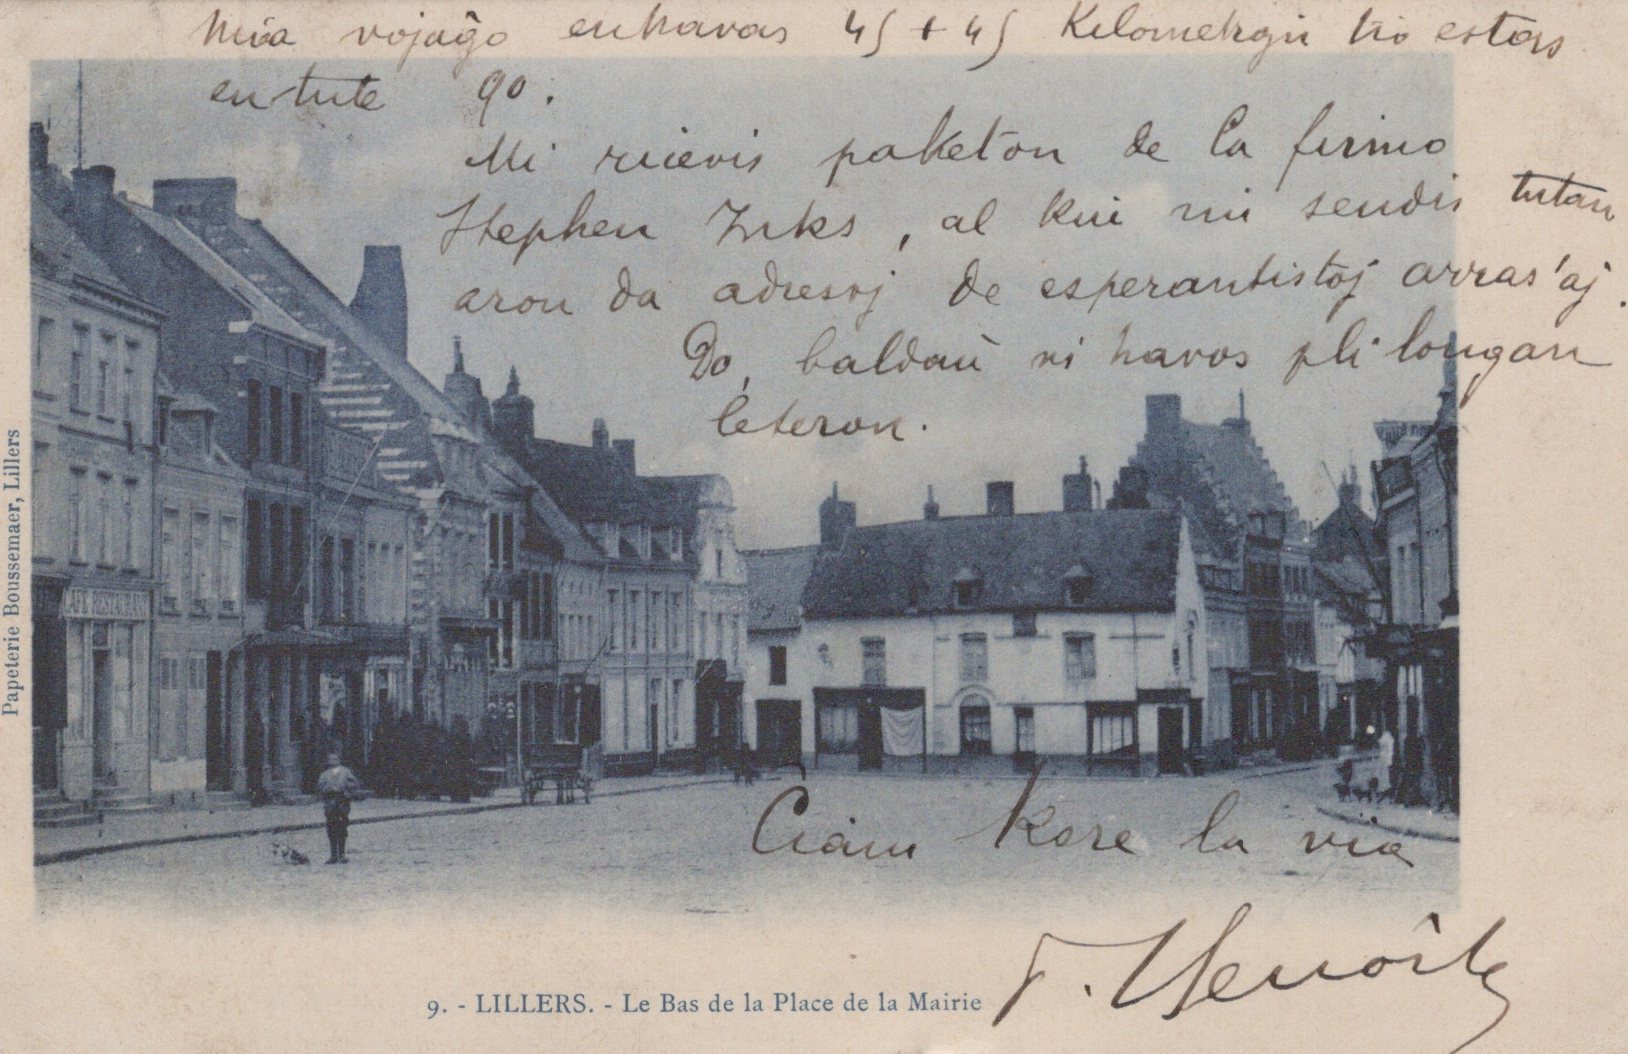 Mia vojaĝo enhavas 45 + 45 Kilometrojn tio estas
en tute 90.
Mi ricevis paketon de la firmo
Stephen Inks, al kiu mi sendis tutan
aron da adresoj de esperantistoj arras'aj.
Do, baldaŭ vi havos pli longan
leteron.
Ciam kore la via
CAFÉ RESTAURANT
Papeterie Boussemaer, Lillers
9. - LILLERS. - Le Bas de la Place de la Mairie